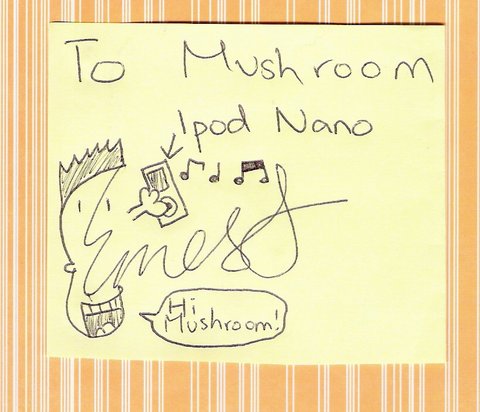 To Mushroom
Ipod Nano
Ernest
Hi
Mushroom!